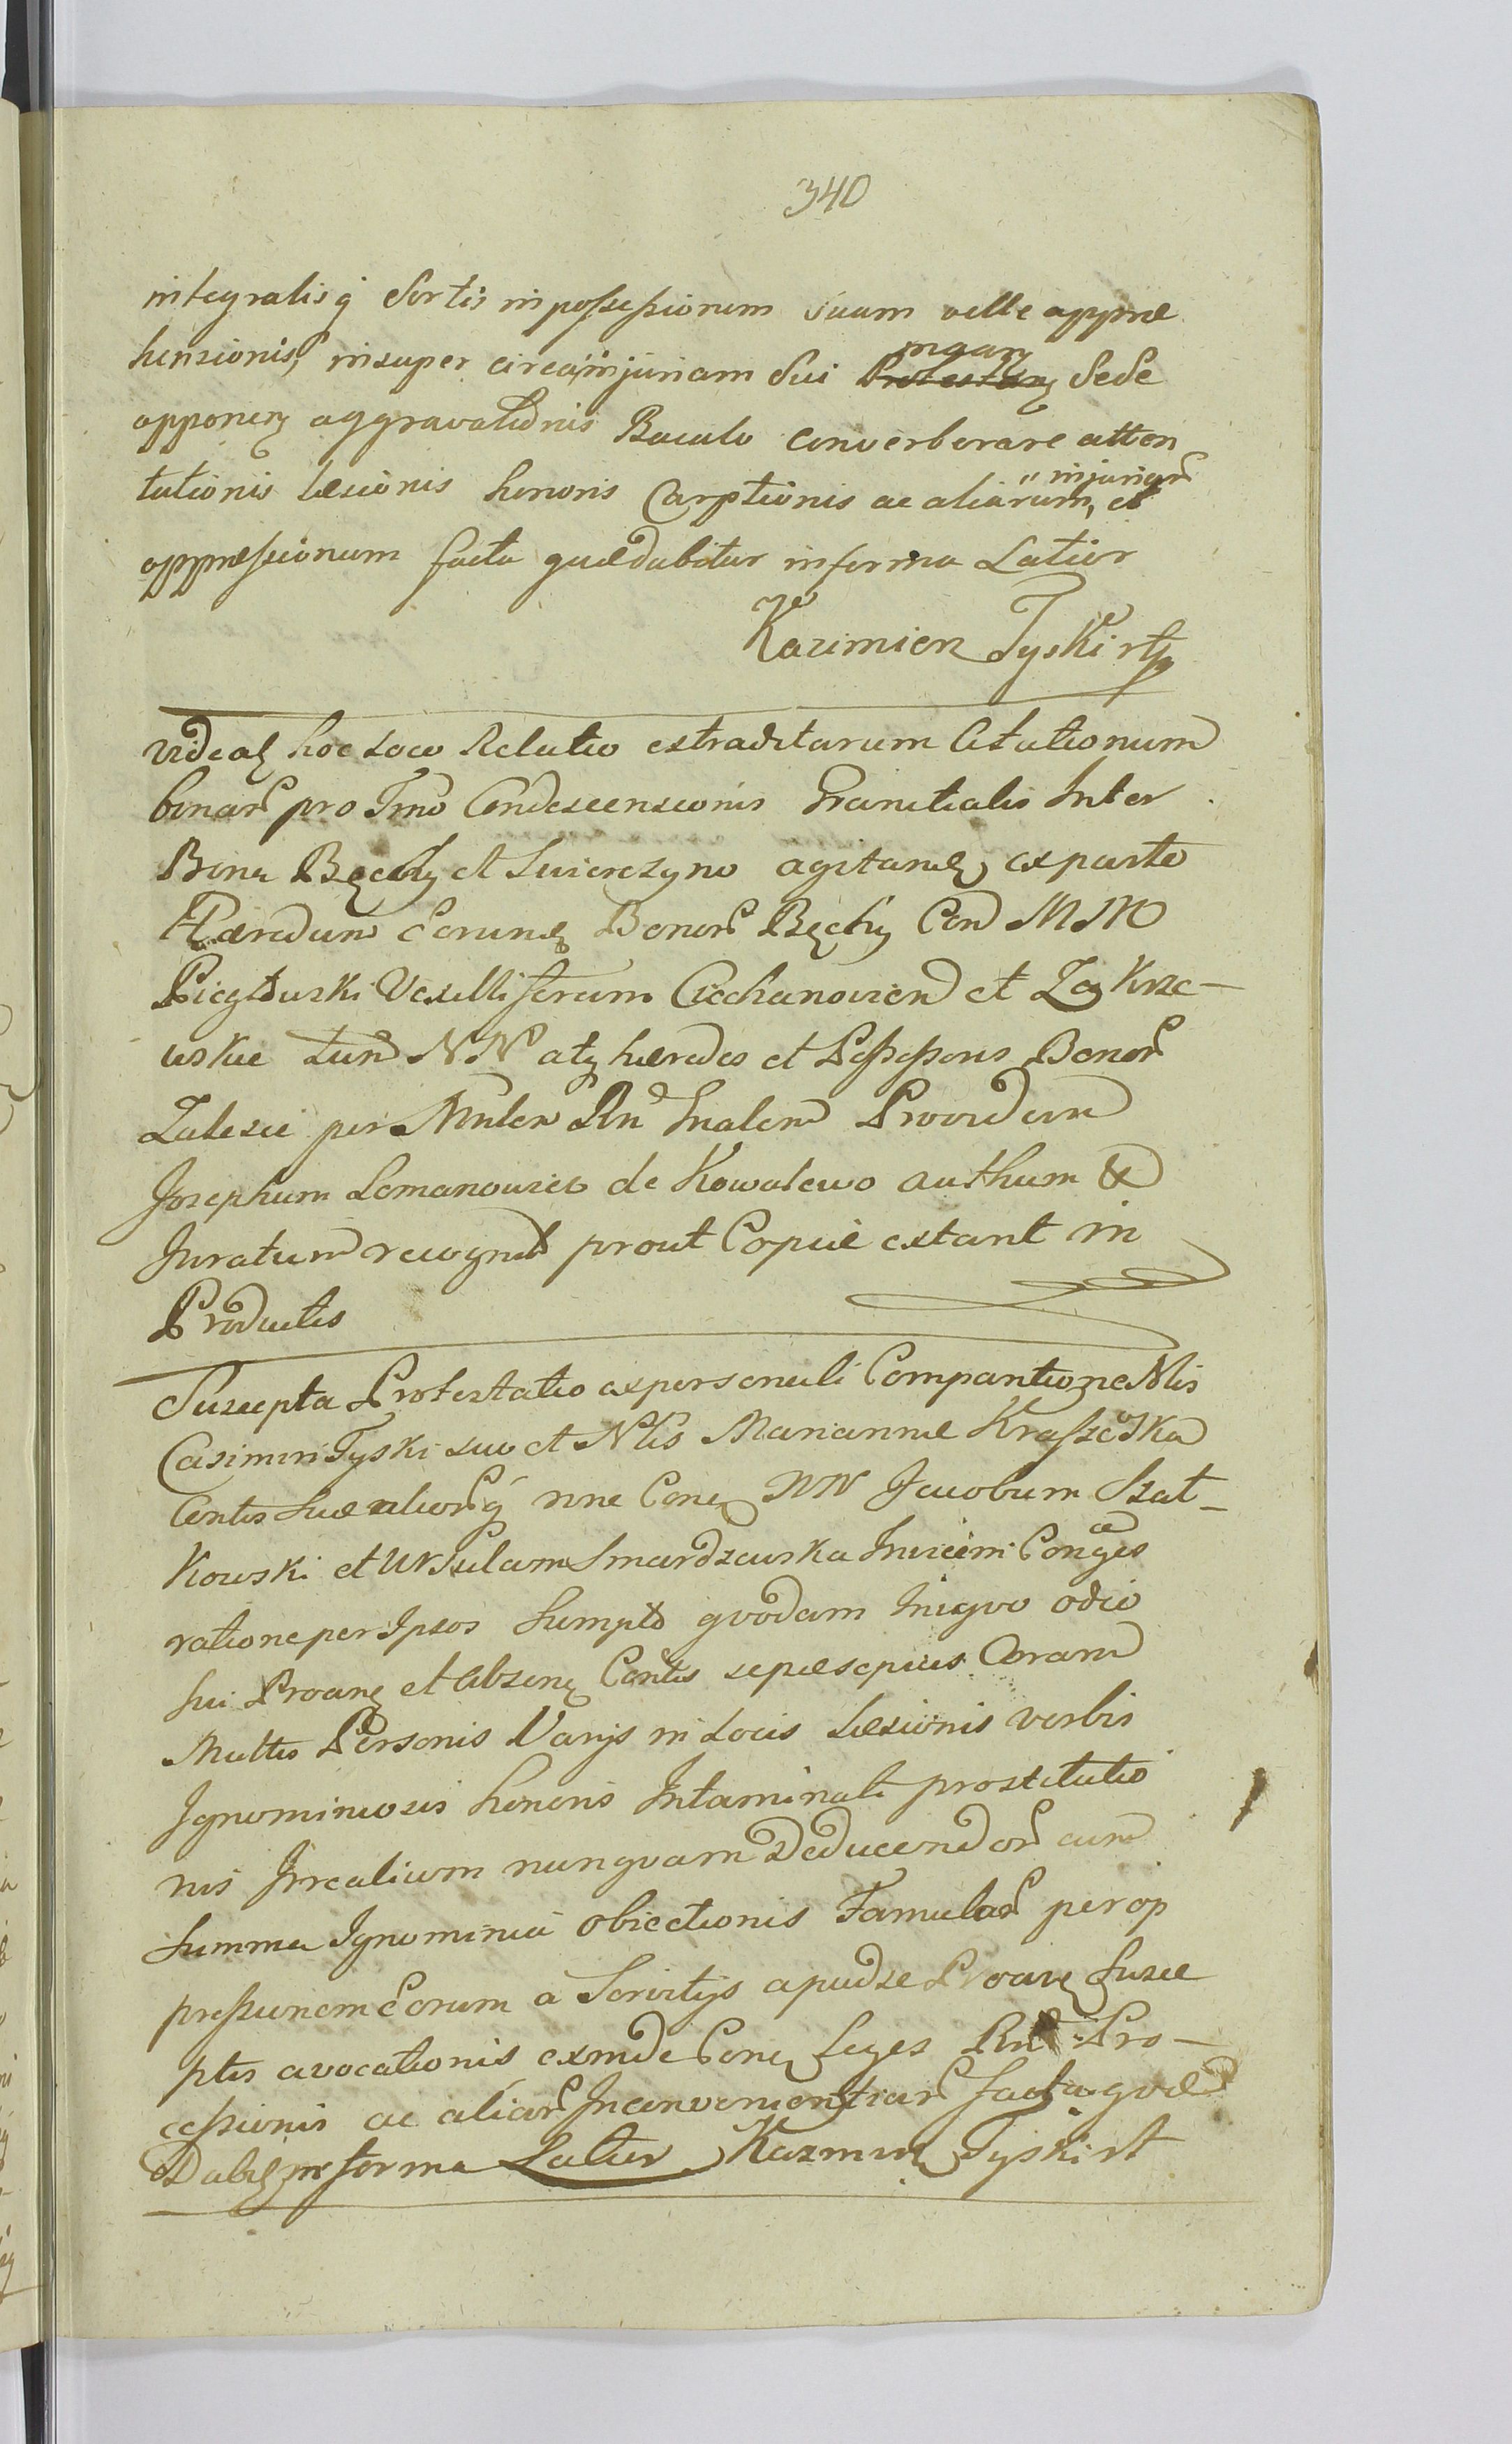 340
integralisq̃ Sortis in possessionem suam velle appræ
hensionis, insuper circa injuriam Sui mgan Sese
opponen aggravationis Baculo converberare atten
tationis læsionis honoris Carptionis ac aliarum injuriar et
oppressionum facta quæ dabitur in forma Latior
Kazimierz Tyski
Videat hoc Loco Relatio extraditarum Citationum
binar pro Tmo Condescensionis Granitialis Inter
Bona Bęchy et Swierczyno agitan ex parte
Hæredum Eorund Bonor Bęchy Con MM
Piegłowski Vexilliferum Ciechanovien et Zakrze-
wskie tum NN aty hæredes et Possessores Bonor
Zalesie per Mnlem Rn Gnalem Provdum
Josephum Lemanowicz de Kowalewo authum &
Juratum recognit prout Copiæ extant in
Productis
Suscepta Protestatio ex personali Comparitione Nlis
Casimiri Tyski suo et Nlis Mariannæ Kraszeska
Contis Suæ aliorq̃ nne Conq NN Jacobum Szat-
kowski et Ursulam Smardzewska Invicem Conges
ratione per Ipsos Sumpto quodam Iniquo odio
Sui Proanq et Absenq Contis sepæ sepius Coram
Multis Personis Varijs in Locis Læsionis verbis
Ignominiosis honoris Intaminati prostitutio
nis Irrealium nunquam Deducendor cum
Summa Ignominia obiectionis Famular per op
pressionem Eorum a Servitijs apud se Proanq Susce
ptis avocationis exinde Conq Leges Rn Pro-
cessionis ac aliar Inconvenientiar facta quæ
Dabit in forma Latior Kazmirz Tyski